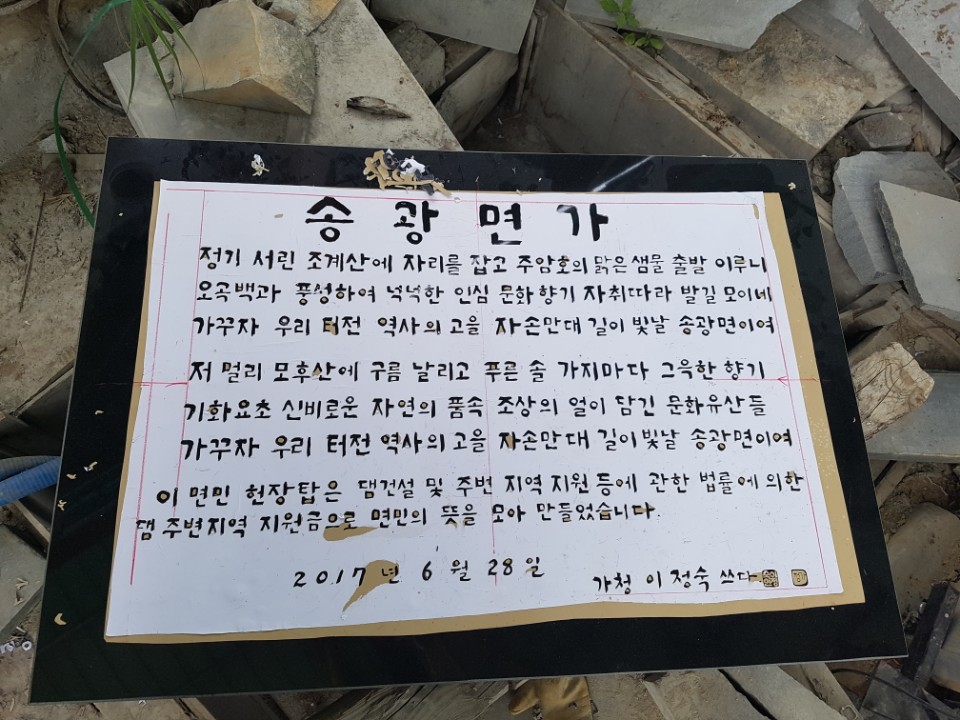 송광면가
정기 서린 조계산에 자리를 잡고 주암호의 맑은샘물 출발 이루니
오곡백과 풍성하여 넉넉한 인심 문화향기 자취따라 발길 모이네
가꾸자 우리 터전 역사의 고을 자손만대 길이 빛날 송광면이여
저 멀리 모후산에 구름 날리고 푸른 솔 가지마다 그윽한 향기
기화요초 신비로운 자연의 품속 조상의 얼이 담긴 문화유산들
가꾸자 우리 터전 역사의 고을 자손만대 길이 빛날 송광면이여
이 면민 헌장탑은 댐건설 및 주변 지역 지원 등에 관한 법률에 의한
댐 주변지역 지원금으로 면민의 뜻을 모아 만들었습니다.
2017년 6월 28일
가청 이정숙 쓰다